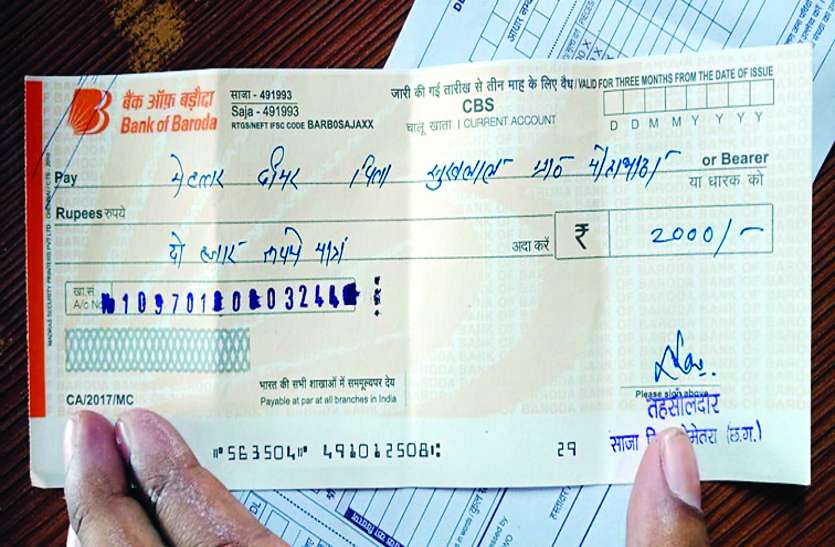 बैंक ऑफ़ बड़ौदा
Bank of Baroda
साजा - 491993
Saja - 491993
RTGS/NEFT IFSC CODE BARB0SAJAXX
जारी की गई तारीख से तीन माह के लिए वैध/VALID FOR THREE MONTHS FROM THE DATE OF ISSUE
CBS
चालू खाता I CURRENT ACCOUNT
D D M M Y Y Y Y
Pay पिता सुखलाल or Bearer
या धारक को
Rupees रुपये
दो हजार रूपये मात्र
अदा करें ₹ 2000/-
खा.सं.
A/c No.
CA/2017/MC
भारत की सभी शाखाओं में सममूल्यपर देय
Payable at par at all branches in India
Please sign above
तहसीलदार
साजा (छ.ग.)
⑈563504⑈ 491012508⑆ 29
MADRAS SECURITY PRINTERS PVT LTD